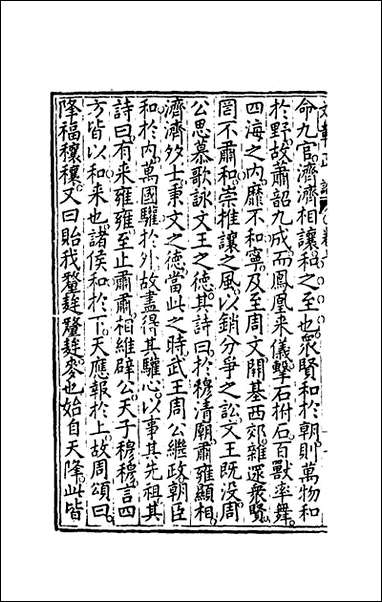 命九官濟濟相讓和之至也衆賢和於朝則萬物和
於野故蕭韶九成而鳳凰来儀擊石拊石百獸率舞
四海之内靡不和寧及至周文開基西郊雜遝衆賢
罔不肅和崇推讓之風以銷分爭之訟文王既没周
公思慕歌詠文王之德其詩曰於穆清廟肅雍顯相
濟濟多士秉文之德當此之時武王周公繼政朝臣
和於内萬國驩於外故盡得其驩心以事其先祖其
詩曰有来雍雍至止肅肅相維辟公天子穆穆言四
方皆以和来也諸侯和於下天應報於上故周頌曰
降福穰穰又曰貽我釐麰釐麰麥也始自天降此皆